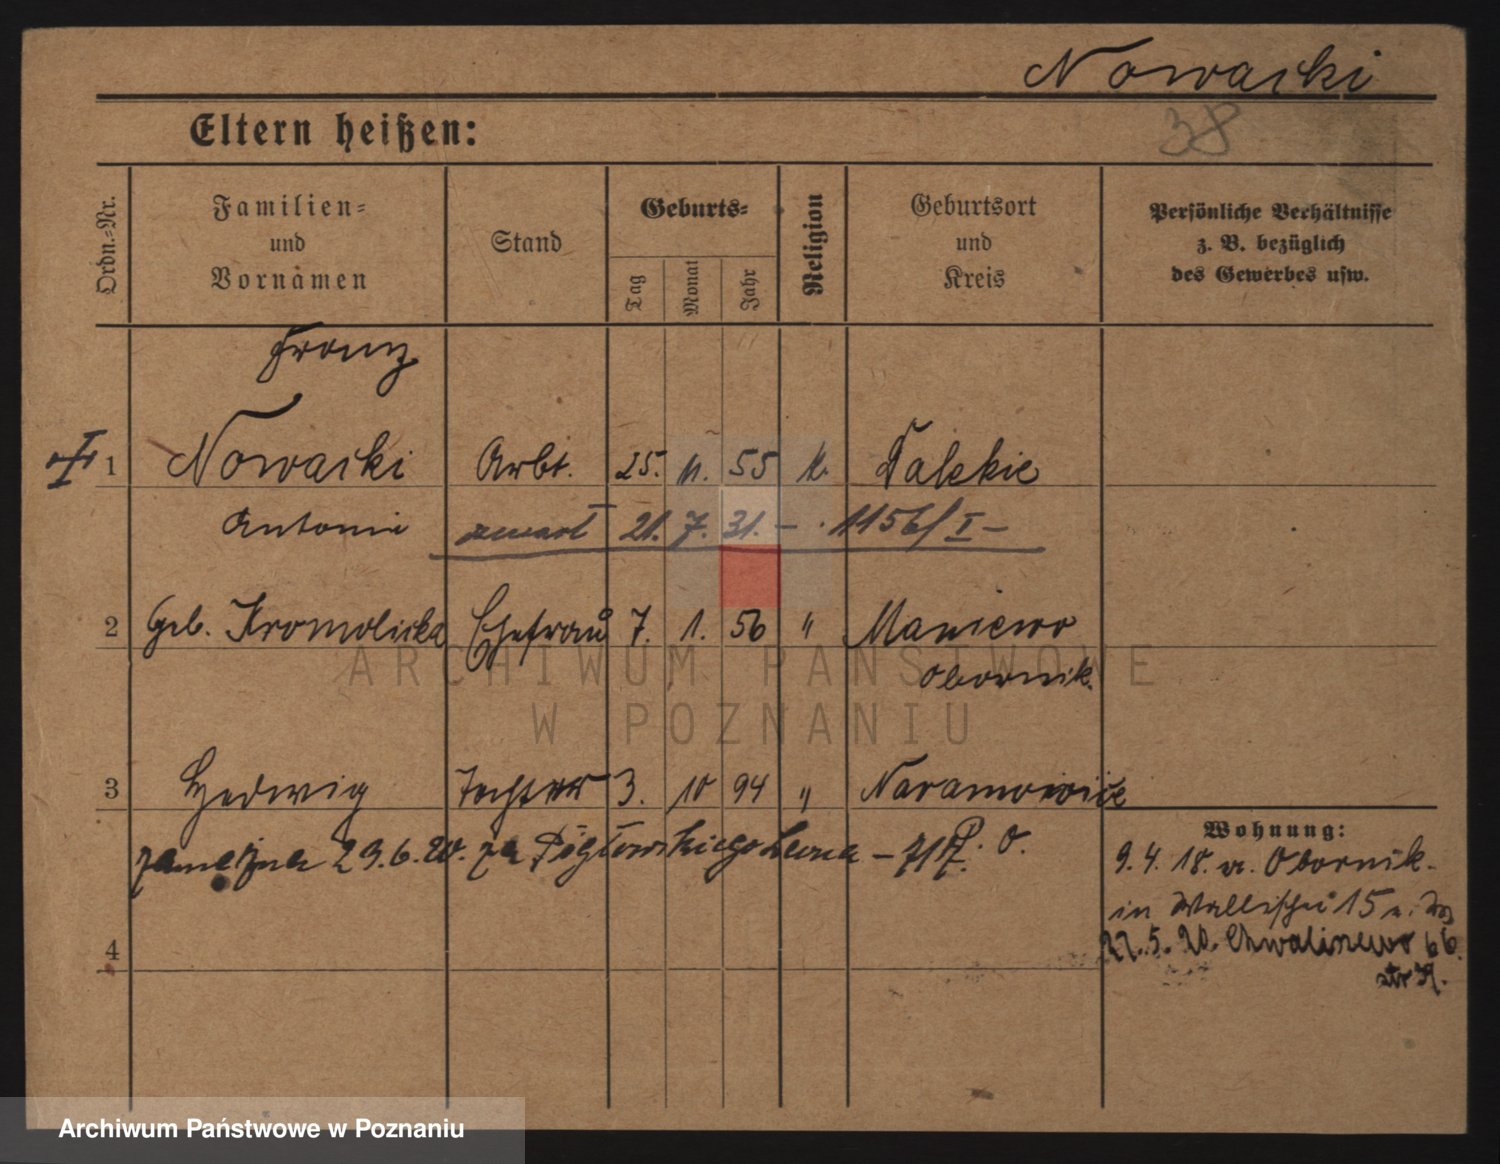 Nowacki
38
Eltern heißen:
Ordn.=Nr.
Familien=
und
Vornamen
Stand
Geburts=
Tag
Monat
Jahr
Religion
Geburtsort
und
Kreis
Persönliche Verhältnisse
z. B. bezüglich
des Gewerbes usw.
Franz
1 Nowacki Arbt. 25. 11. 55 k.
Antonie zmarł 21. 7. 31. – 1156/I –
2 geb. Kromolicka Ehefrau 7. 1. 56 " Maniewo
Obornik.
3 Hedwig Tochter 3. 10 94 " Naramowice
zamężna 29.6.20. za Leona –
4
Wohnung:
9. 4. 18. a. Obornik.
in Wallischei 15
22. 5. 20. Chwaliszewo 66.
ARCHIWUM PAŃSTWOWE
W POZNANIU
Archiwum Państwowe w Poznaniu